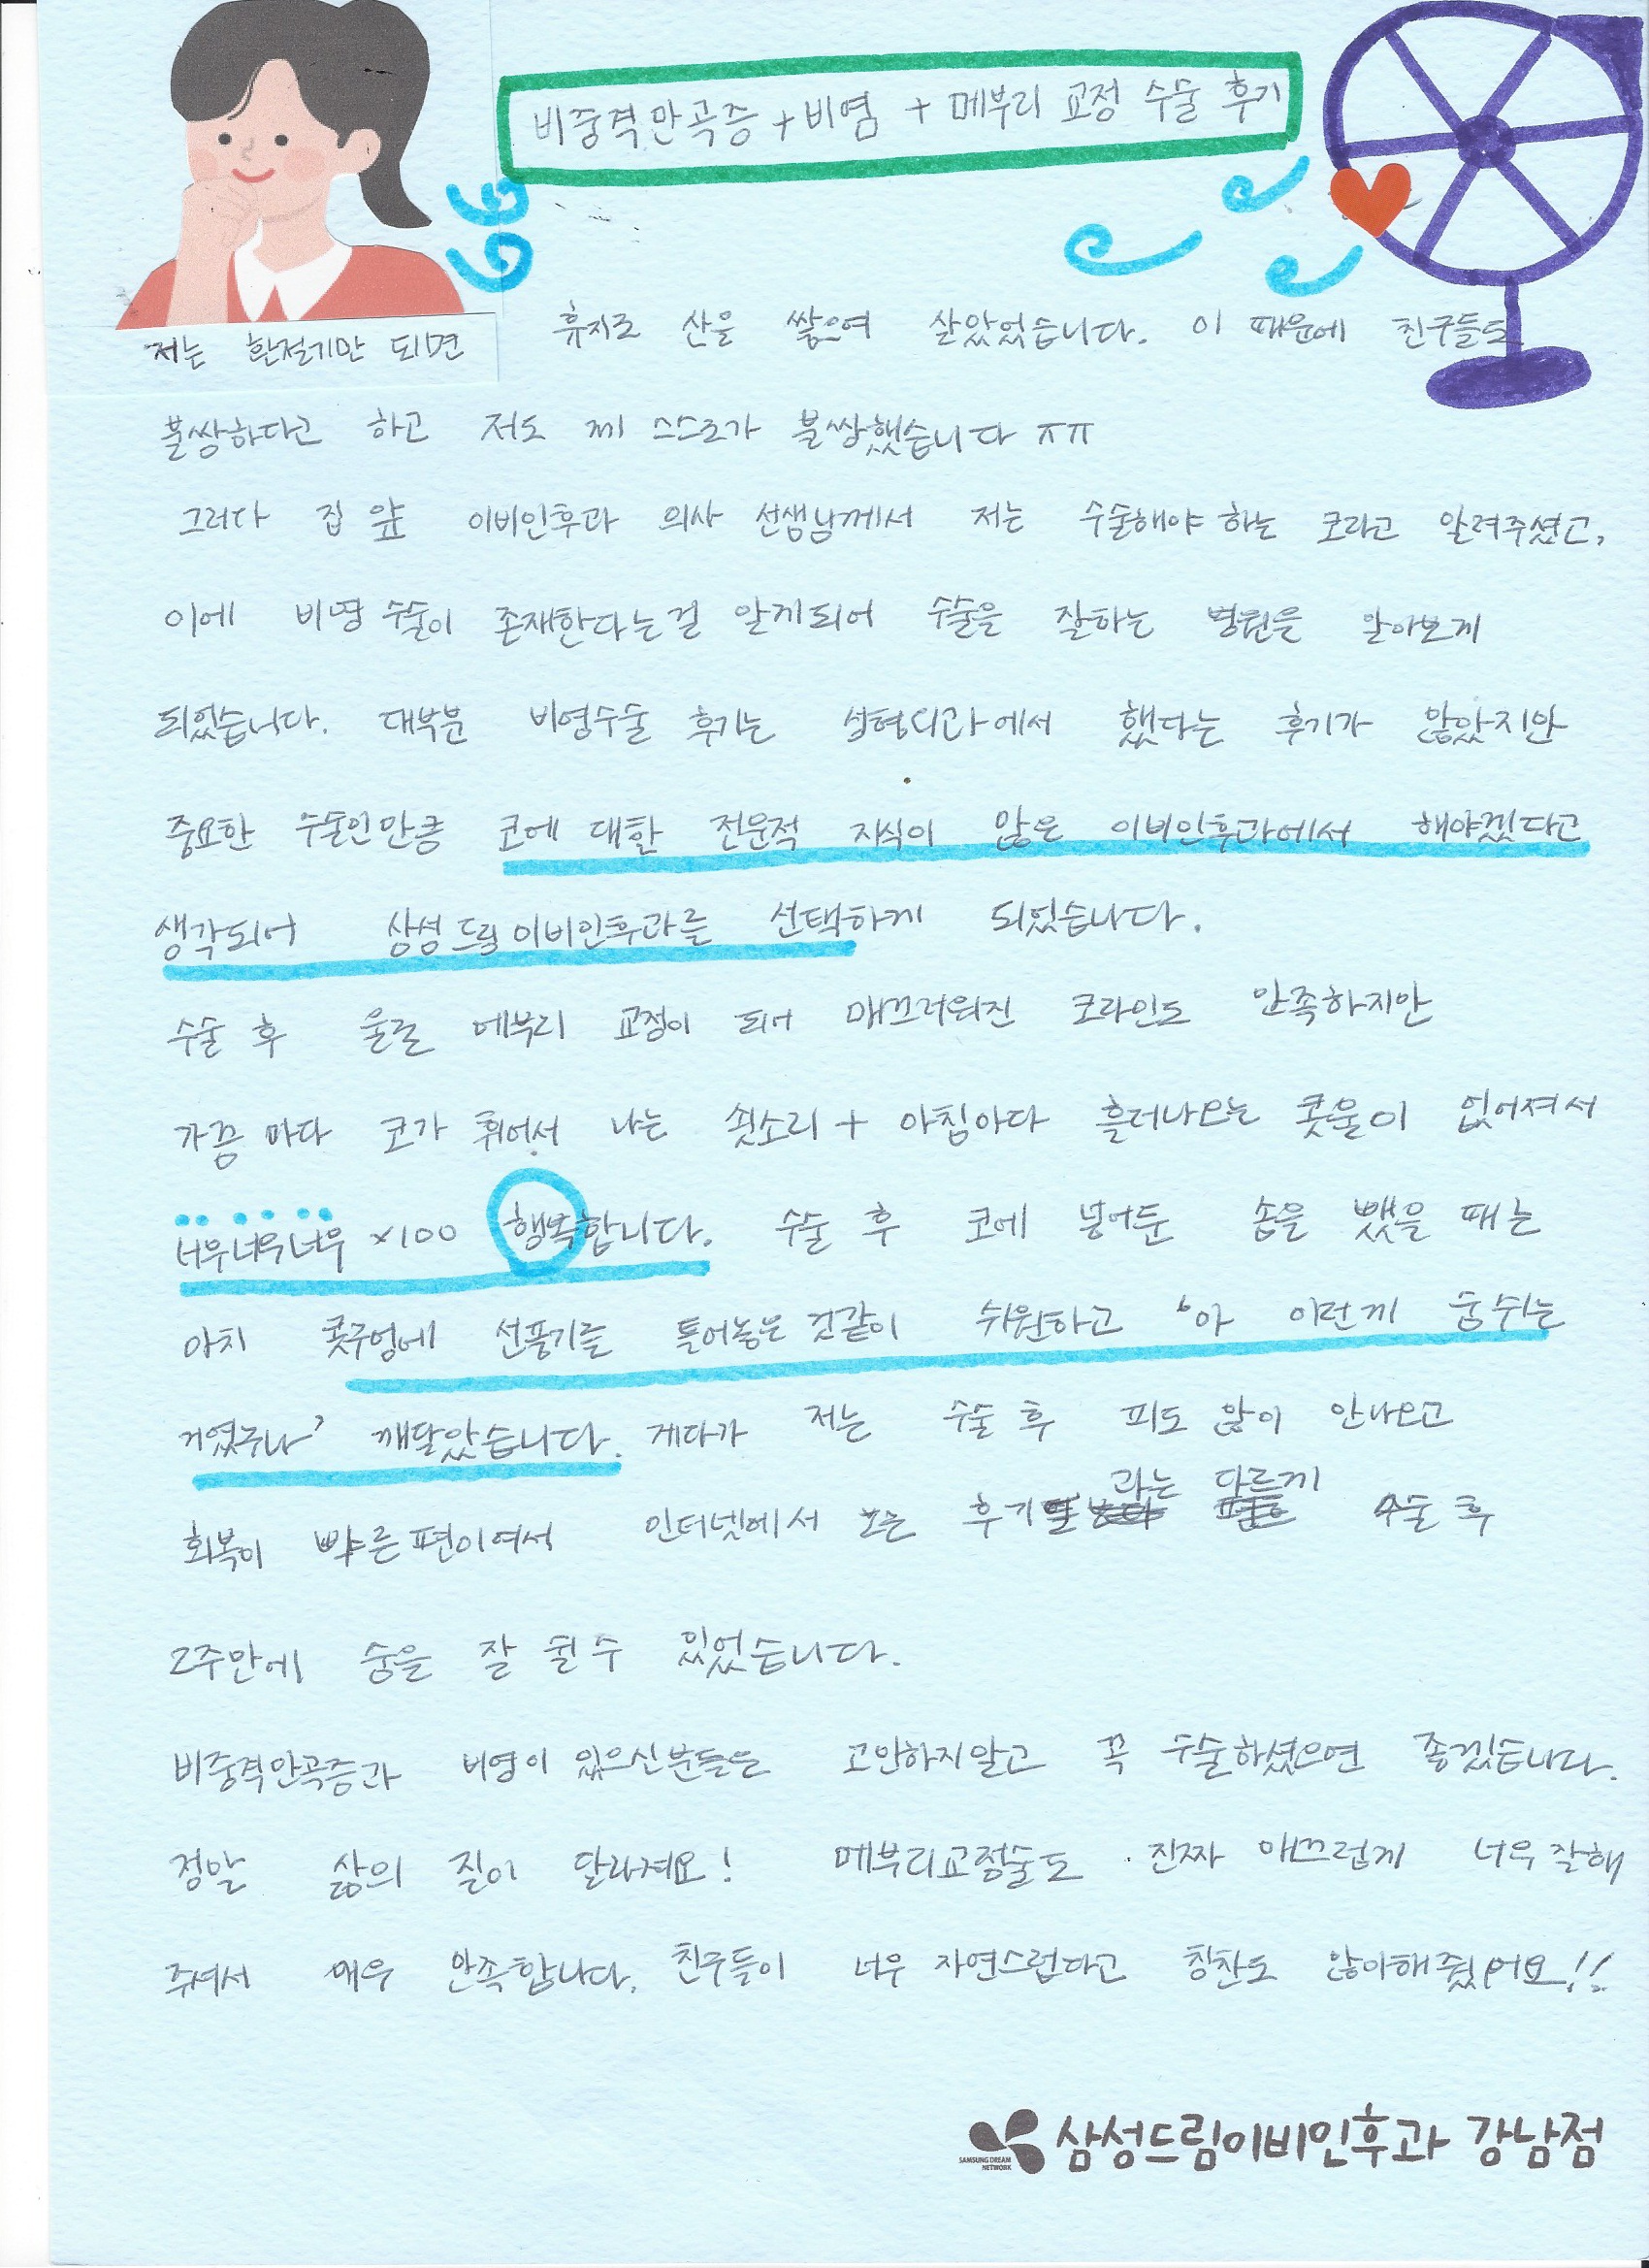 비중격만곡증+비염 + 메부리 교정 수술 후기
저는 환절기만 되면 휴지로 산을 쌓으며 살았었습니다. 이 때문에 친구들도
불쌍하다고 하고 저도 제 스스로가 불쌍했습니다 ㅠㅠ
그러다 집 앞 이비인후과 의사 선생님께서 저는 수술해야 하는 코라고 알려주셨고,
이에 비염 수술이 존재한다는걸 알게되어 수술을 잘하는 병원을 알아보게
되었습니다. 대부분 비염수술 후기는 성형외과에서 했다는 후기가 많았지만
중요한 수술인만큼 코에 대한 전문적 지식이 많은 이비인후과에서 해야겠다고
생각되어 삼성드림이비인후과를 선택하게 되었습니다.
수술 후 물론 메부리 교정이 되어 매끄러워진 코라인도 만족하지만
가끔 마다 코가 휘어서 나는 쇳소리 + 아침마다 흘러나오는 콧물이 없어져서
너무너무너무 x100 행복합니다. 수술 후 코에 넣어둔 솜을 뺐을 때는
마치 콧구멍에 선풍기를 틀어놓은 것같이 시원하고 '아 이런게 숨쉬는
거였구나' 깨달았습니다. 게다가 저는 수술 후 피도 많이 안나오고
회복이 빠른편이여서 인터넷에서 보는 후기과는 다르게 수술 후
2주만에 숨을 잘 쉴 수 있었습니다.
비중격만곡증과 비염이 있으신분들은 고민하지말고 꼭 수술하셨으면 좋겠습니다.
정말 삶의 질이 달라져요! 메부리교정술도 진짜 매끄럽게 너무 잘해
주셔서 매우 만족합니다. 친구들이 너무 자연스럽다고 칭찬도 많이해줬어요!!
SAMSUNG DREAM NETWORK 삼성드림이비인후과 강남점